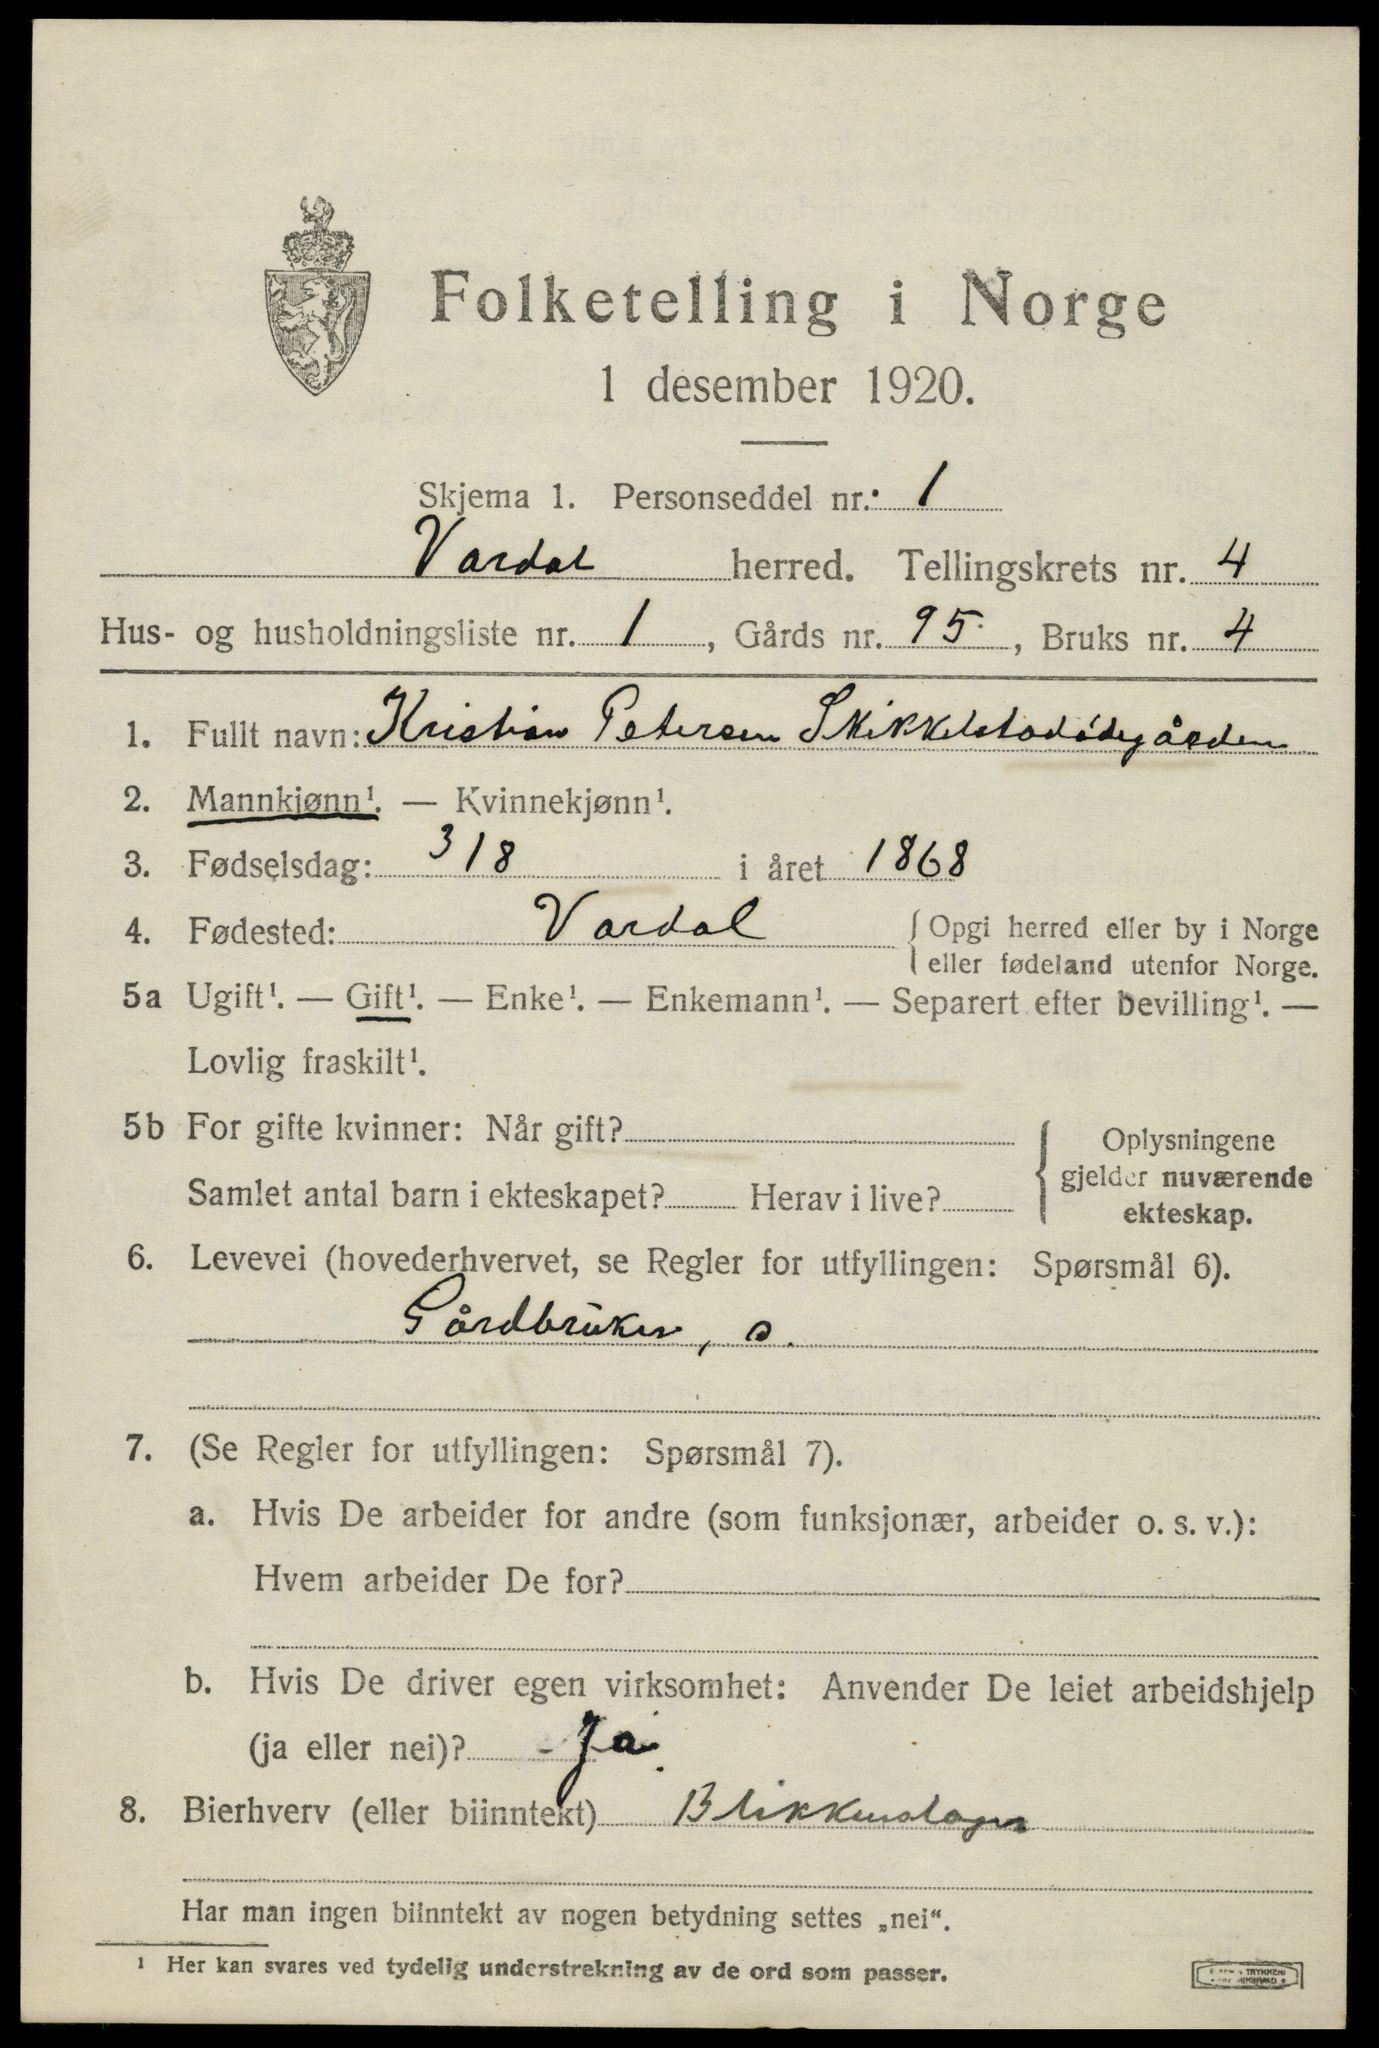 Folketelling i Norge
1 desember 1920.
Skjema 1. Personseddel nr. 1
Vardal herred. Tellingskrets nr. 4
Hus- og husholdningsliste nr. 1, Gårds nr. 95, Bruks nr. 4
1. Fullt navn: Kristian Petersen Skikkelstadødegården
2. Mannkjønn¹. — Kvinnekjønn¹.
3. Fødselsdag: 3/8 i året 1868
4. Fødested: Vardal { Opgi herred eller by i Norge
eller fødeland utenfor Norge.
5a Ugift¹. — Gift¹. — Enke¹. — Enkemann¹. — Separert efter bevilling¹. —
Lovlig fraskilt¹.
5b For gifte kvinner: Når gift?
Samlet antal barn i ekteskapet? Herav i live?
{ Oplysningene
gjelder nuværende
ekteskap.
6. Levevei (hovederhvervet, se Regler for utfyllingen: Spørsmål 6).
Gårdbruker, s.
7. (Se Regler for utfyllingen: Spørsmål 7).
a. Hvis De arbeider for andre (som funksjonær, arbeider o. s. v.):
Hvem arbeider De for?
b. Hvis De driver egen virksomhet: Anvender De leiet arbeidshjelp
(ja eller nei)? Ja.
8. Bierhverv (eller biinntekt) Blikkenslager
Har man ingen biinntekt av nogen betydning settes „nei“.
¹ Her kan svares ved tydelig understrekning av de ord som passer.